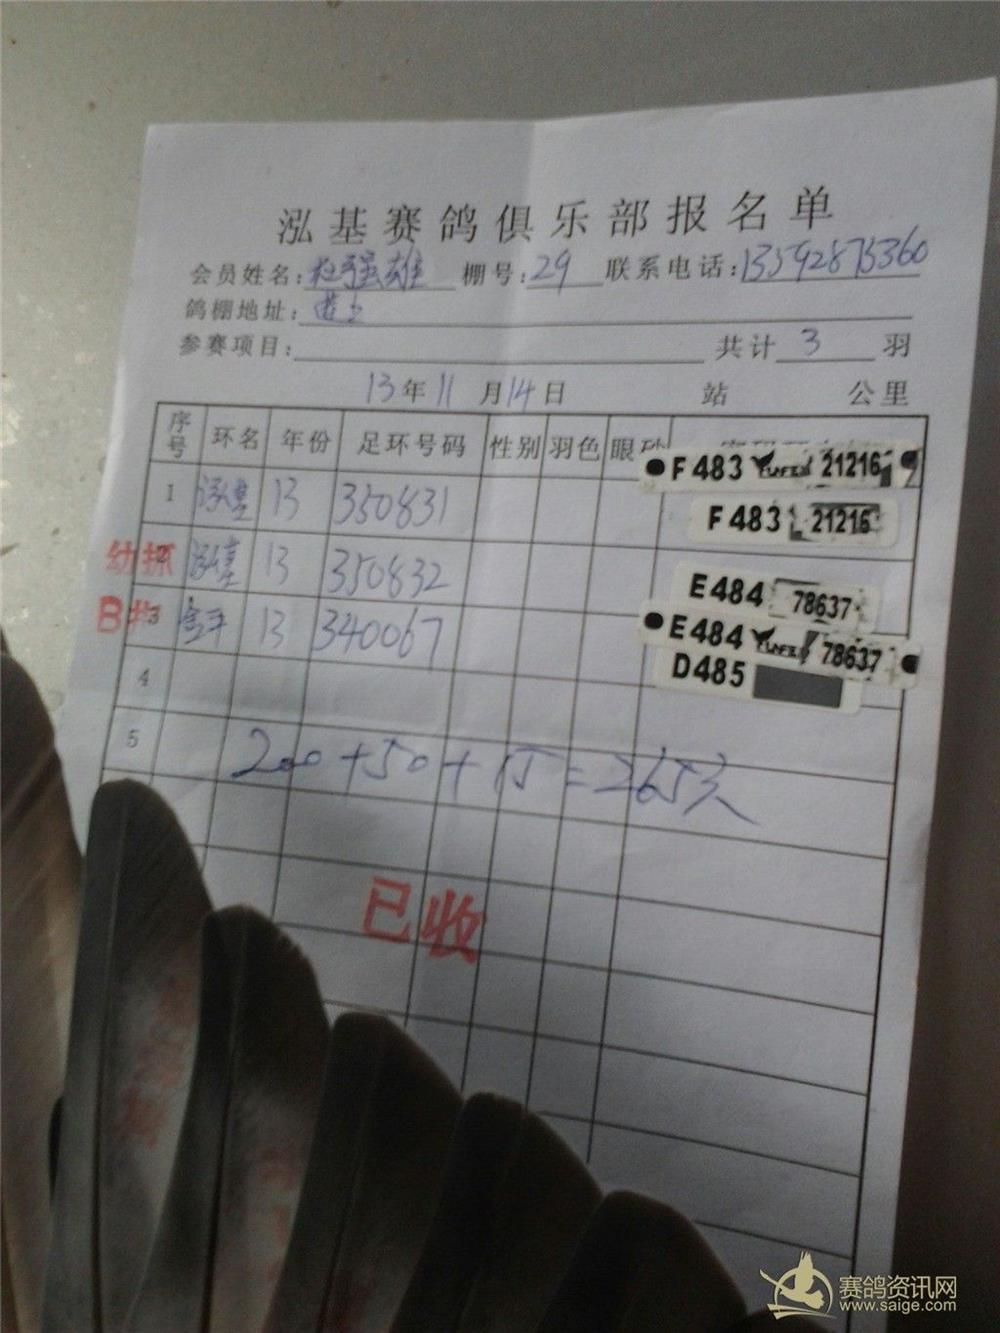 泓基赛鸽俱乐部报名单
会员姓名:杜强雄 棚号:29 联系电话:13592873360
鸽棚地址:
参赛项目: 共计 3 羽
13年11月14日 站 公里
序号 环名 年份 足环号码 性别 羽色 眼砂
1 泓基 13 350831 F483 21216
F483 21216
幼抓 泓基 13 350832 E484 78637
B 3 13 340067 E484 78637
D485
4
5
200+50+15=265
已收
赛鸽资讯网
www.saige.com